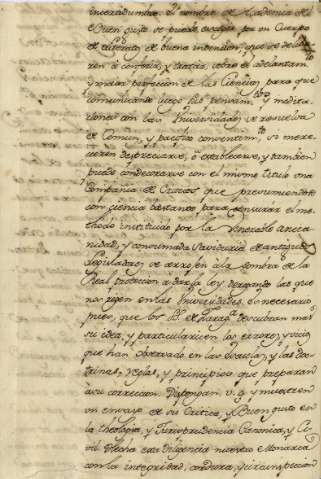 incertidumbre. El nombre de Academia del
Buen gusto se puede escoger por un Cuerpo
de buena intencion, que se
ren a conferir, y tratar, sobre el adelantam.to
y maior perfeccion de las Ciencias, para que
comunicando luego sus pensam.tos y medita
ciones con las Universidades, se resuelva
de comun, y pacifico consentim.to si mere
cieren despreciarse, o establecerse, y tambien
puede condecorarse con el mismo titulo una
Compañia de Criticos que presumiendose
con ciencia bastante para censurar el me
thodo instituido por la venerable ancia
nidad, y consumada Sabiduria de antiguos
se arrojen a la sombra de la
Real proteccion a dar la ley derogando las que
nos rigen en las Universidades. Es necesario
pues, que los de Zarag.a descubran mas
su idea, y particularicen los errores, y vicios
que han observado en las Escuelas, y las doc
trinas, reglas, y principios que preparan
a su correccion. Dispongan v. g. y muestren
un ensayo de su Critica, y Buen gusto en
la theologia, y Jurisprudencia Canonica, y Ci
vil. Hecha esta diligencia nuestra Monarca
con la integridad, cordura, y circunspeccion